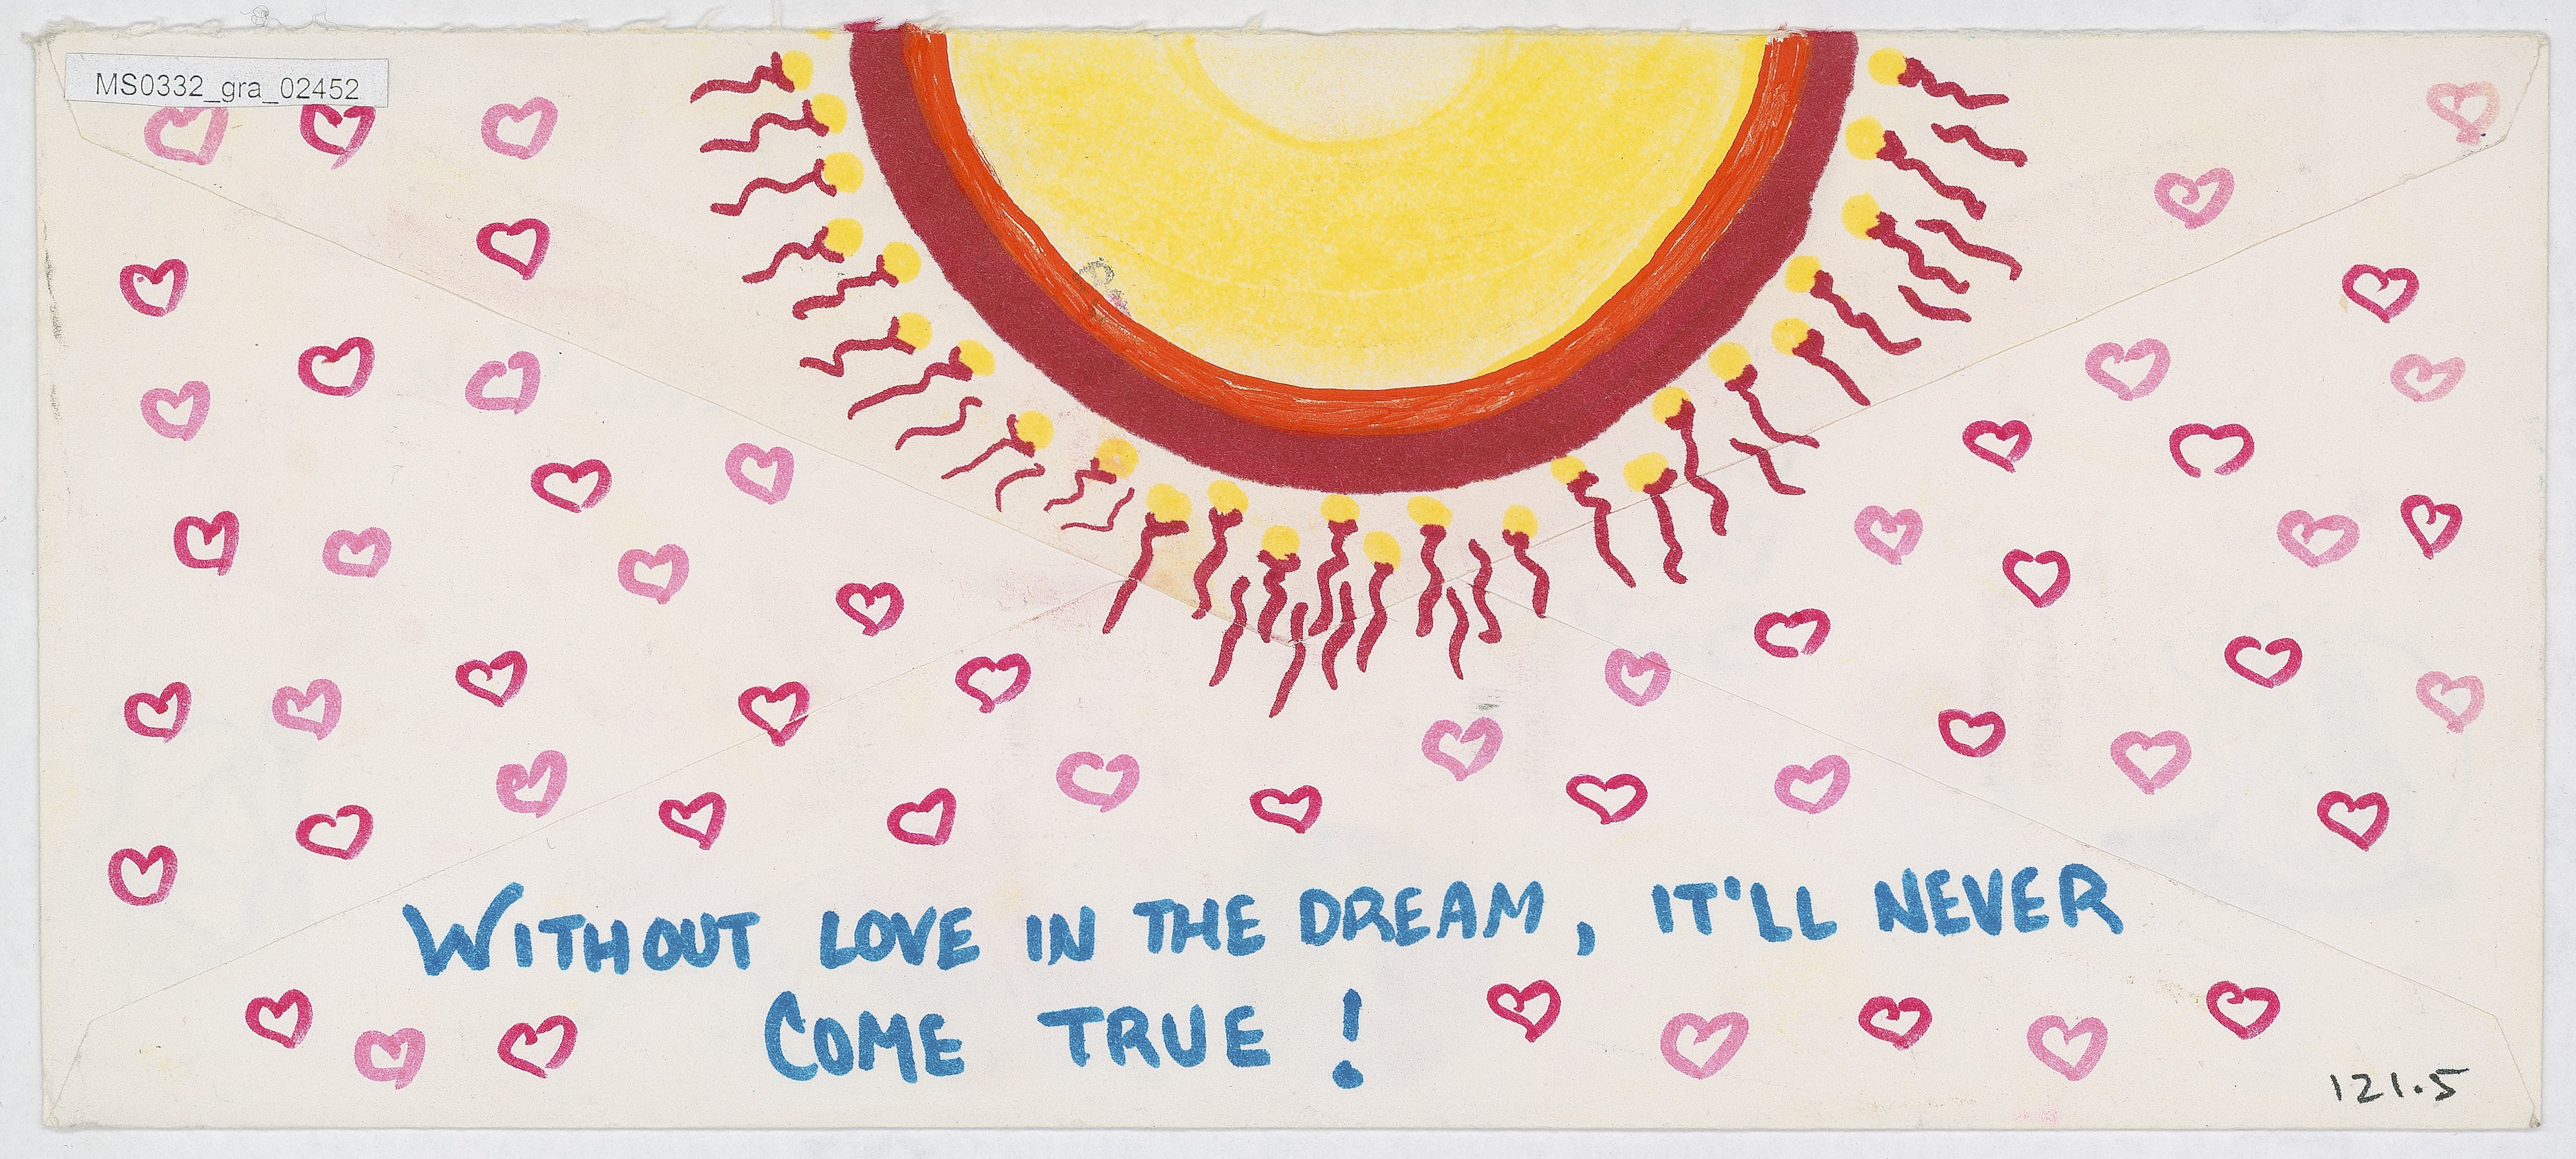 MS0332_gra_02452
WITHOUT LOVE IN THE DREAM, IT'LL NEVER
COME TRUE!
121.5